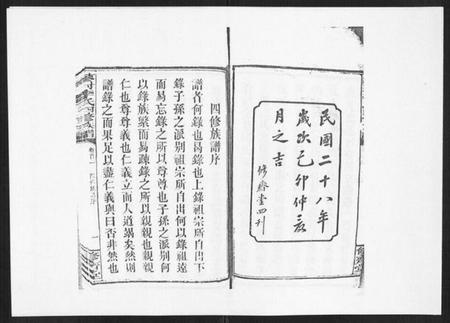 民國二十八年
歲次己卯仲
月之吉
修齊堂四刊
四修族譜序
譜者何錄也曷錄也上錄祖宗所自出下
錄子孫之派別祖宗所自出何以錄祖遠
而易忘錄之所以尊尊也子孫之派別何
以錄族繁而易疎錄之所以親親也親親
仁也尊尊義也仁義立而人道竭矣然則
譜錄之而果足以盡仁義與曰否非然也